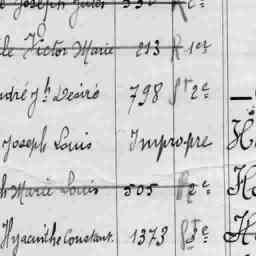 Joseph Jules 530 R 2e
le Victor Marie 213 R 1er
ndré Jh Désiré 798 2e
Joseph Louis Impropre
h Marie Louis 505 R 2e
Hyacinthe Constant. 1373 2e